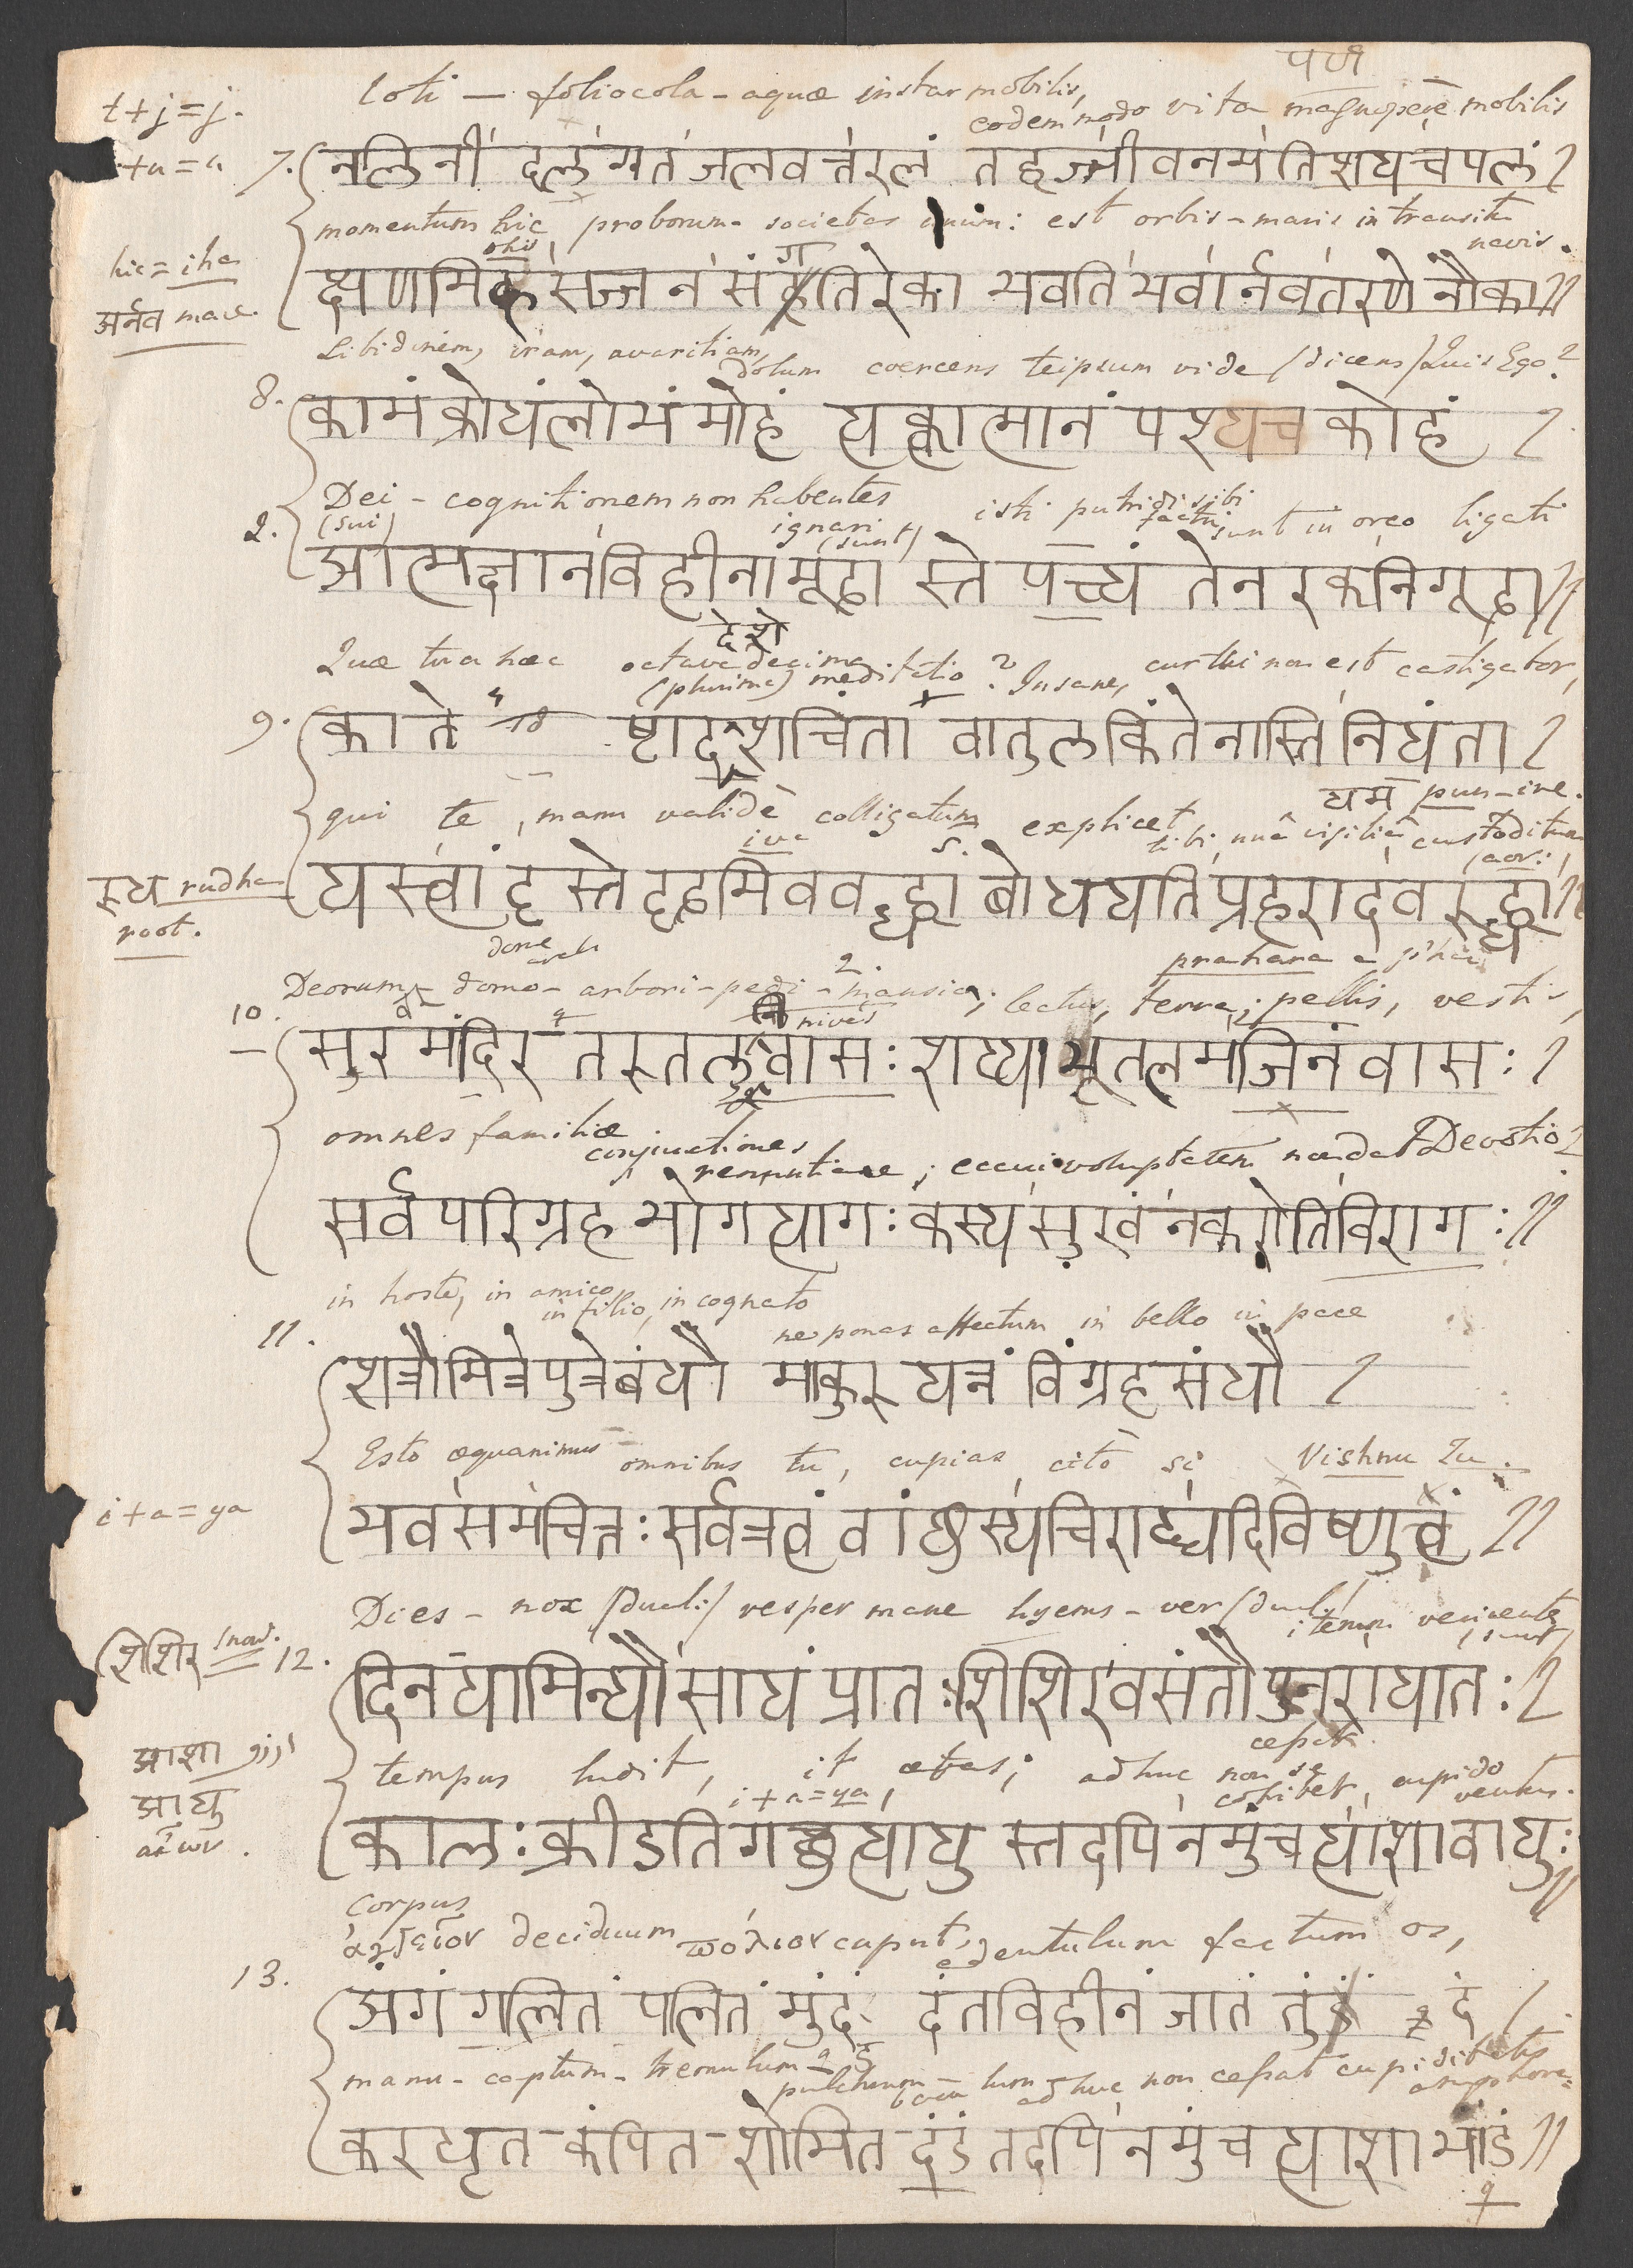 पण
loti — foliocola - aquæ instar mobilis, eodem modo vita magnopere mobilis
t + j = j.
+ a = a
7. नलिनी दलगत जलवत्तरलं तद्वज्जीवनमतिशयचपलं ।
momentum hic proborum - societas unum: est orbis - maris in transitu navis.
hic = iha
अर्नव mare.
क्षणमिह सज्जन संगतिरेका भवति भवार्नवतरणे नौका ॥
Libidinem, iram, avaritiam, dolum coercens teipsum vide (dicens) Quis Ego?
8. कामं क्रोधं लोभं मोहं त्यक्त्वात्मानं पश्यच कोहं ।
Dei - cognitionem non habentes isti putridi sibi facti sunt in orco ligati
(sui) ignari (sunt)
2. आत्मज्ञानविहीनामूढा स्ते पच्यं तेनरकनिगूढा ॥
देशे
Quæ tua hæc octavadecima (plurima) meditatio? Insane, cur tui non est castigator,
9. का ते 18 ष्टादशचिंता वातुलकिंतेनास्तिनियंता ।
यम pun-ire.
qui te, manu validè colligatum explicet
iva s. (aor.)
रुध rudha root.
यस्त्वां हस्ते दृढमिवबद्ध्वा बोधयतिप्रहरादवरुद्ध्वा ॥
prahara
Deorum - domo - arbori - pedi - mansio; lectus, terra; pellis, vestis,
10. सुरमंदिर तरुतलवासः शय्याभूतलमजिनं वासः ।
omnes familiæ conjunctiones renuntiare; eccui voluptatem non dat Devotio?
सर्व परिग्रह भोगत्यागः कस्यसुखं नकरोतिविरागः ॥
in hoste, in amico, in filio, in cognato ne ponas affectum in bello in pace
11. शत्रौमित्रेपुत्रेबंधौ माकुरु यत्नं विग्रहसंधौ ।
Esto æquanimus omnibus tu, cupias citò si Vishnu Tu.
i + a = ya
भवसमचित्तः सर्वत्रत्वं वांछस्यचिराद्यदिविष्णुत्वं ॥
Dies - nox (dual:) vesper mane hyems - ver (dual) iterum
शिशिर
12. दिनयामिन्यौसायं प्रातः शिशिरवसंतौपुनरायातः ।
आशा
आयु
tempus ludit, it ætas; adhuc non se cohibet cupido ventus.
i + a = ya
कालः क्रीडतिगछत्यायु स्तदपिनमुंचत्याशावायुः ॥
corpus
deciduum πόλιον caput, edentulum factum os,
13. अंगं गलितं पलितं मुंदं दंतविहीनं जातं तुं दं ।
manu - captum - tremulum - pulchrum - adhuc non cessat cupiditatis
करधृत - कंपित - शोभित - दंडं तदपिनमुंचत्याशाभांडं ॥